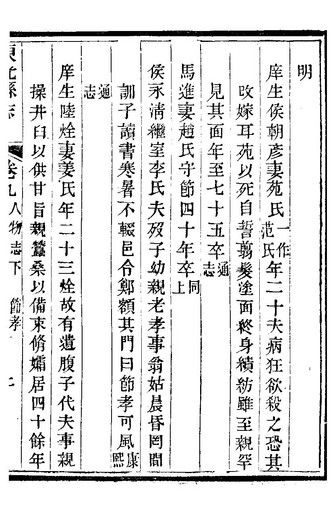 明
庠生侯朝彥妻苑氏一作范氏年二十夫病狂欲殺之恐其
改嫁耳苑以死自誓翦髮塗面終身績紡雖至親罕
見其面年至七十五卒通志
馬進妻趙氏守節四十年卒同上
侯永清繼室李氏夫歿子幼親老孝事翁姑晨昏罔間
訓子讀書寒暑不輟邑令鄭額其門曰節孝可風康熙
通志
庠生陸烇妻姜氏年二十三烇故有遺腹子代夫事親
操井臼以供甘旨親蠶桑以備束脩孀居四十餘年
卷九 人物志下 節孝